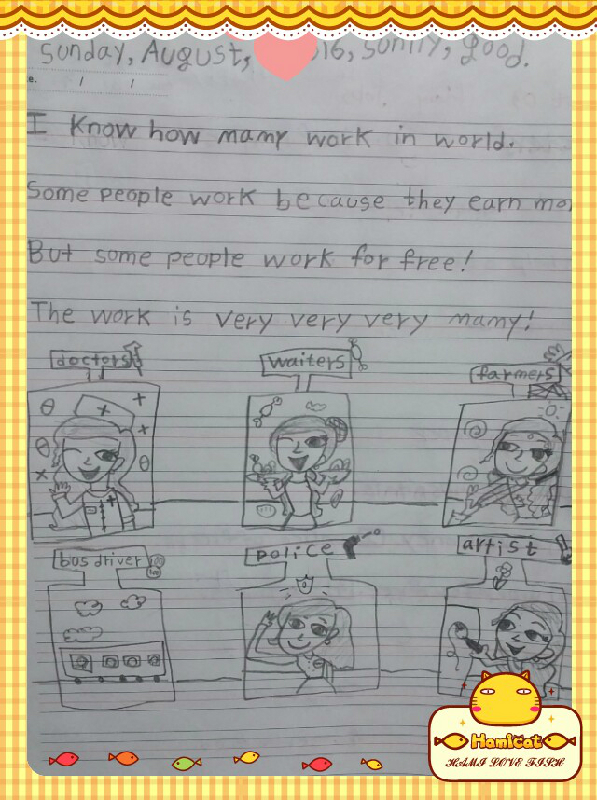 sunday, August, 16, sunny, good.
e. / /
I Know how mamy work in world.
Some people work because they earn mo
But some people work for free!
The work is very very very mamy!
doctors
waiters
farmers
bus driver
police
artist
Hamicat
HAMI LOVE FISH